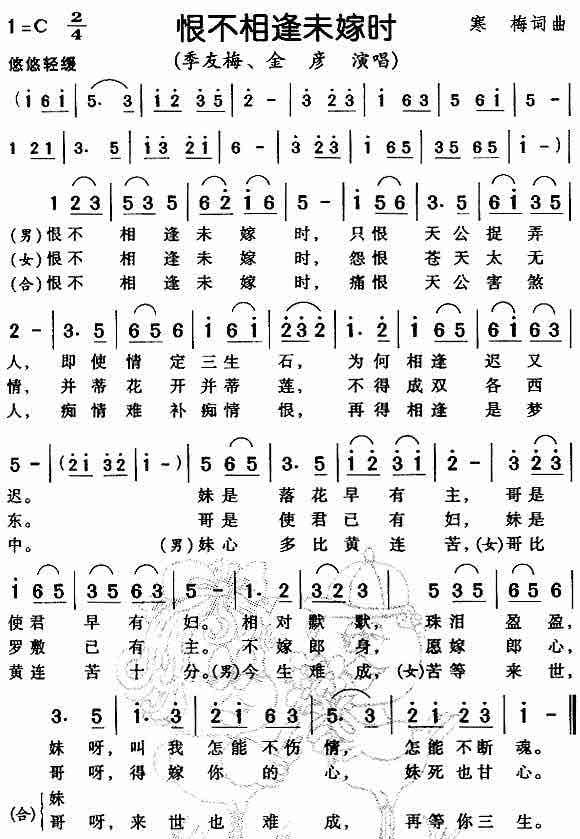 1=C 2/4 恨不相逢未嫁时 寒 梅词曲
悠悠轻缓 (季友梅、金 彦 演唱)
(i 6 i | 5. 3 | i 2 3 5 | 2 - | 3 2 3 | i 6 3 | 5 6 i | 5 - |
1 2 1 | 3. 5 | i 3 2 i | 6 - | 3 2 3 | i 6 5 | 3 5 6 5 | i - )
1 2 3 | 5 3 5 | 6 2 i 6 | 5 - | i 5 6 | 3. 5 | 6 i 3 5 |
(男)恨不 相 逢 未 嫁 时, 只恨 天公捉弄
(女)恨不 相 逢 未 嫁 时, 怨恨 苍天太无
(合)恨不 相 逢 未 嫁 时, 痛恨 天公害煞
2 - | 3. 5 | 6 5 5 | i 6 i | 2 3 2 | i. 2 | 5 6 i 6 |
人, 即使 情 定 三生 石, 为何 相逢 迟 又
情, 并蒂 花 开 并蒂 莲, 不得 成双 各 西
人, 痴情 难 补 痴情 恨, 再得 相逢 是 梦
5 - | (2 i 3 2 | i - ) | 5 6 5 | 3. 5 | i 2 3 | i 2 i | 2 - | 3 2 3 |
迟。 妹是 落花 早 有 主, 哥是
东。 哥是 使君 已 有 妇, 妹是
中。 (男)妹心 多比 黄 连 苦,(女)哥比
i 6 5 | 3 2 3 | 5 - | 1. 2 | 3 2 2 | 5 3 5 | 6 5 6 |
使君 早 有 妇。 相对 默默, 珠泪 盈盈,
罗敷 已 有 主。 不嫁 郎身, 愿嫁 郎心,
黄连 苦 十 分。(男)今生 难成,(女)苦等 来世,
3. 5 | i 3. | 2 i 6 3 | 5. 3 | 2 i 2 3 | i - ‖
妹 呀, 叫 我 怎能不伤 情, 怎能不断 魂。
哥 呀, 得 嫁 你 的 心, 妹死也甘 心。
妹
(合) 哥 呀, 来 世 也 难 成, 再等你三 生。